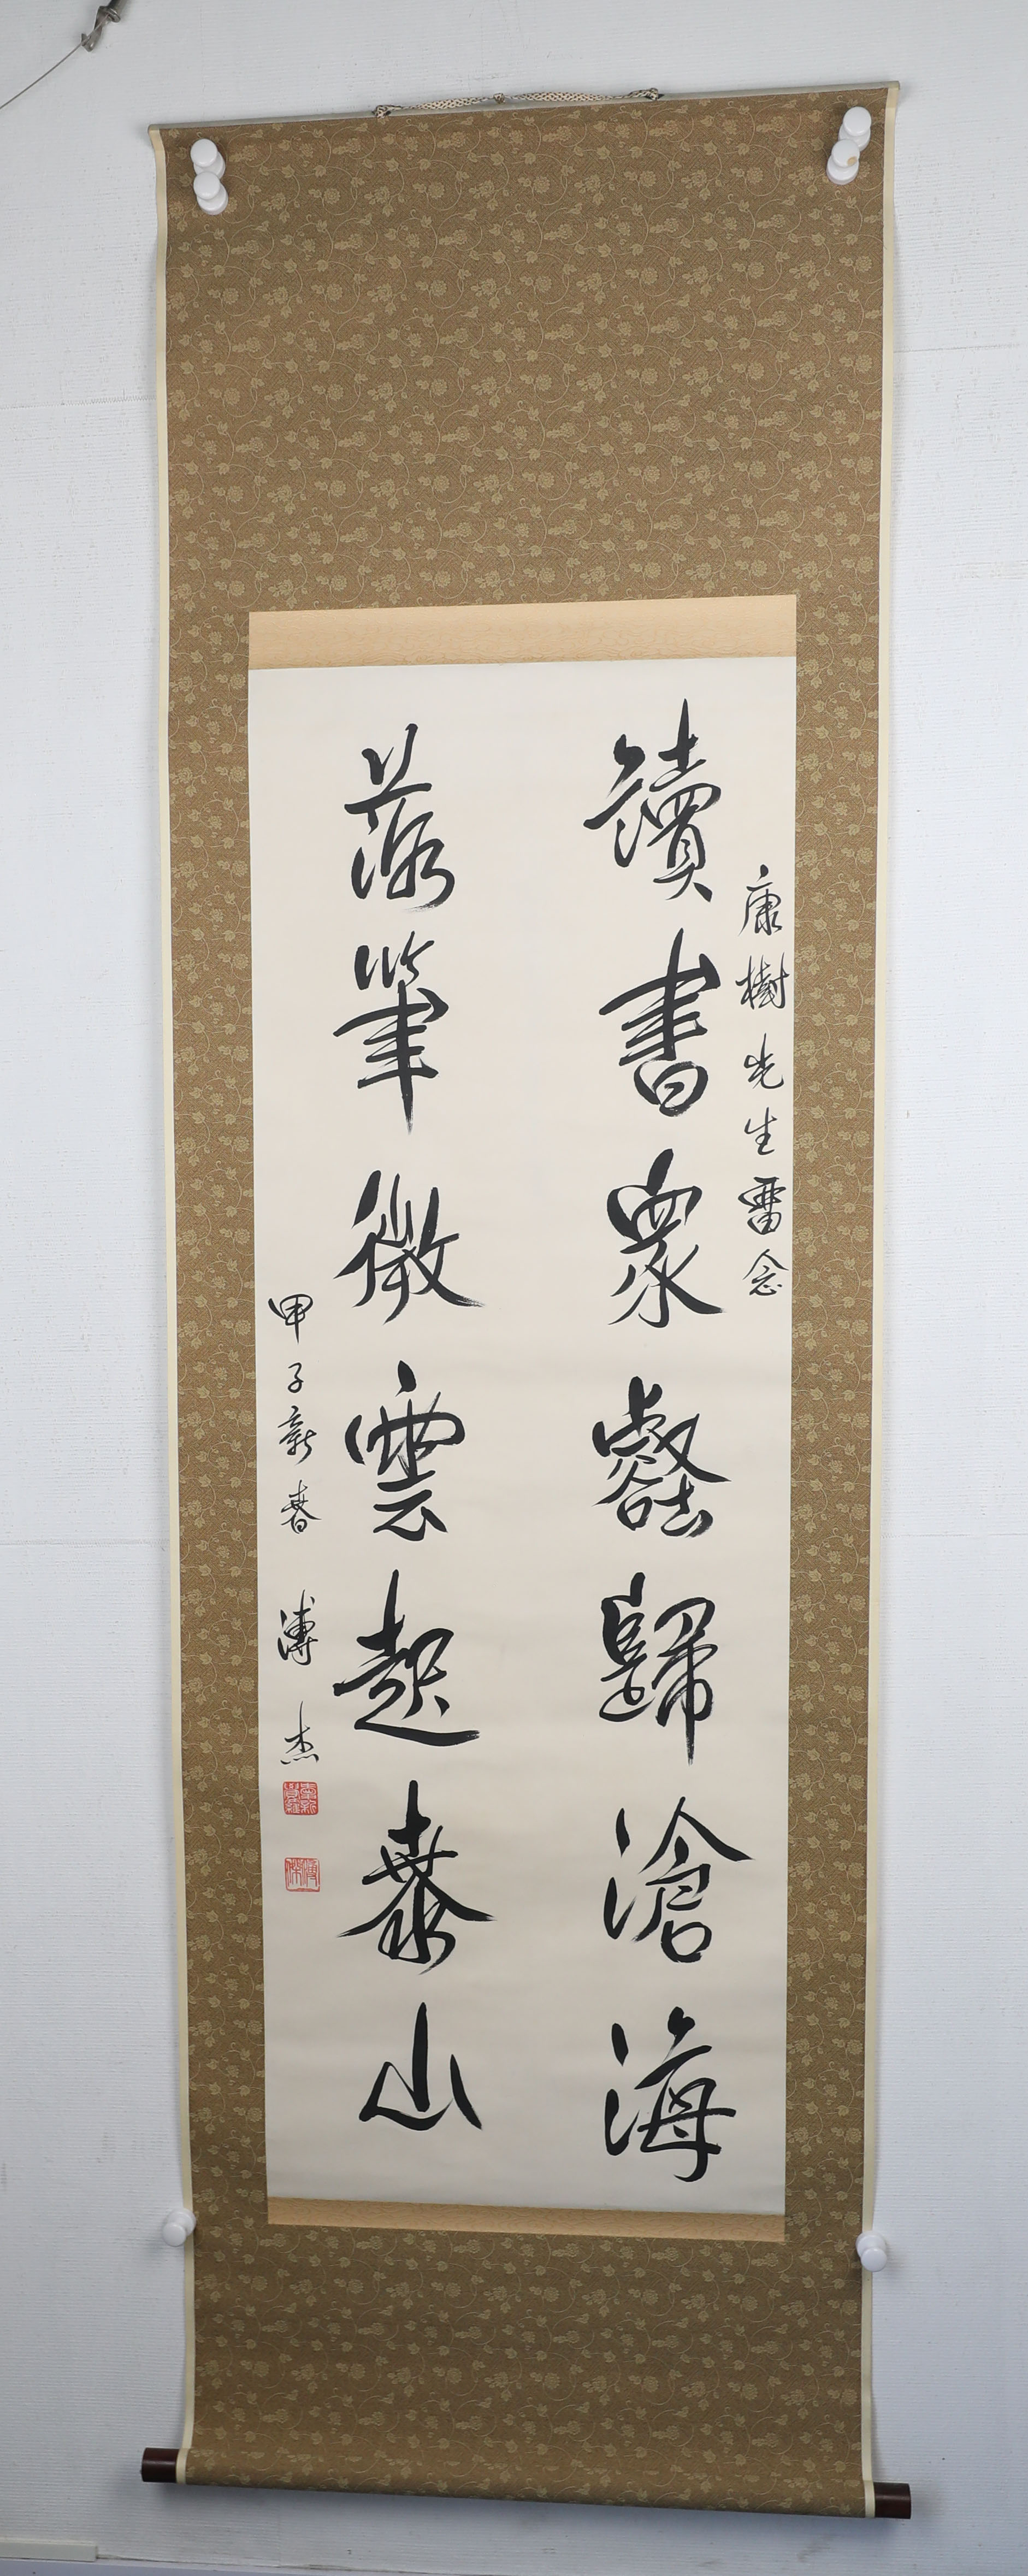 康樹先生畱念
讀書衆壑歸滄海
落筆微雲起泰山
甲子新春 溥杰
溥傑